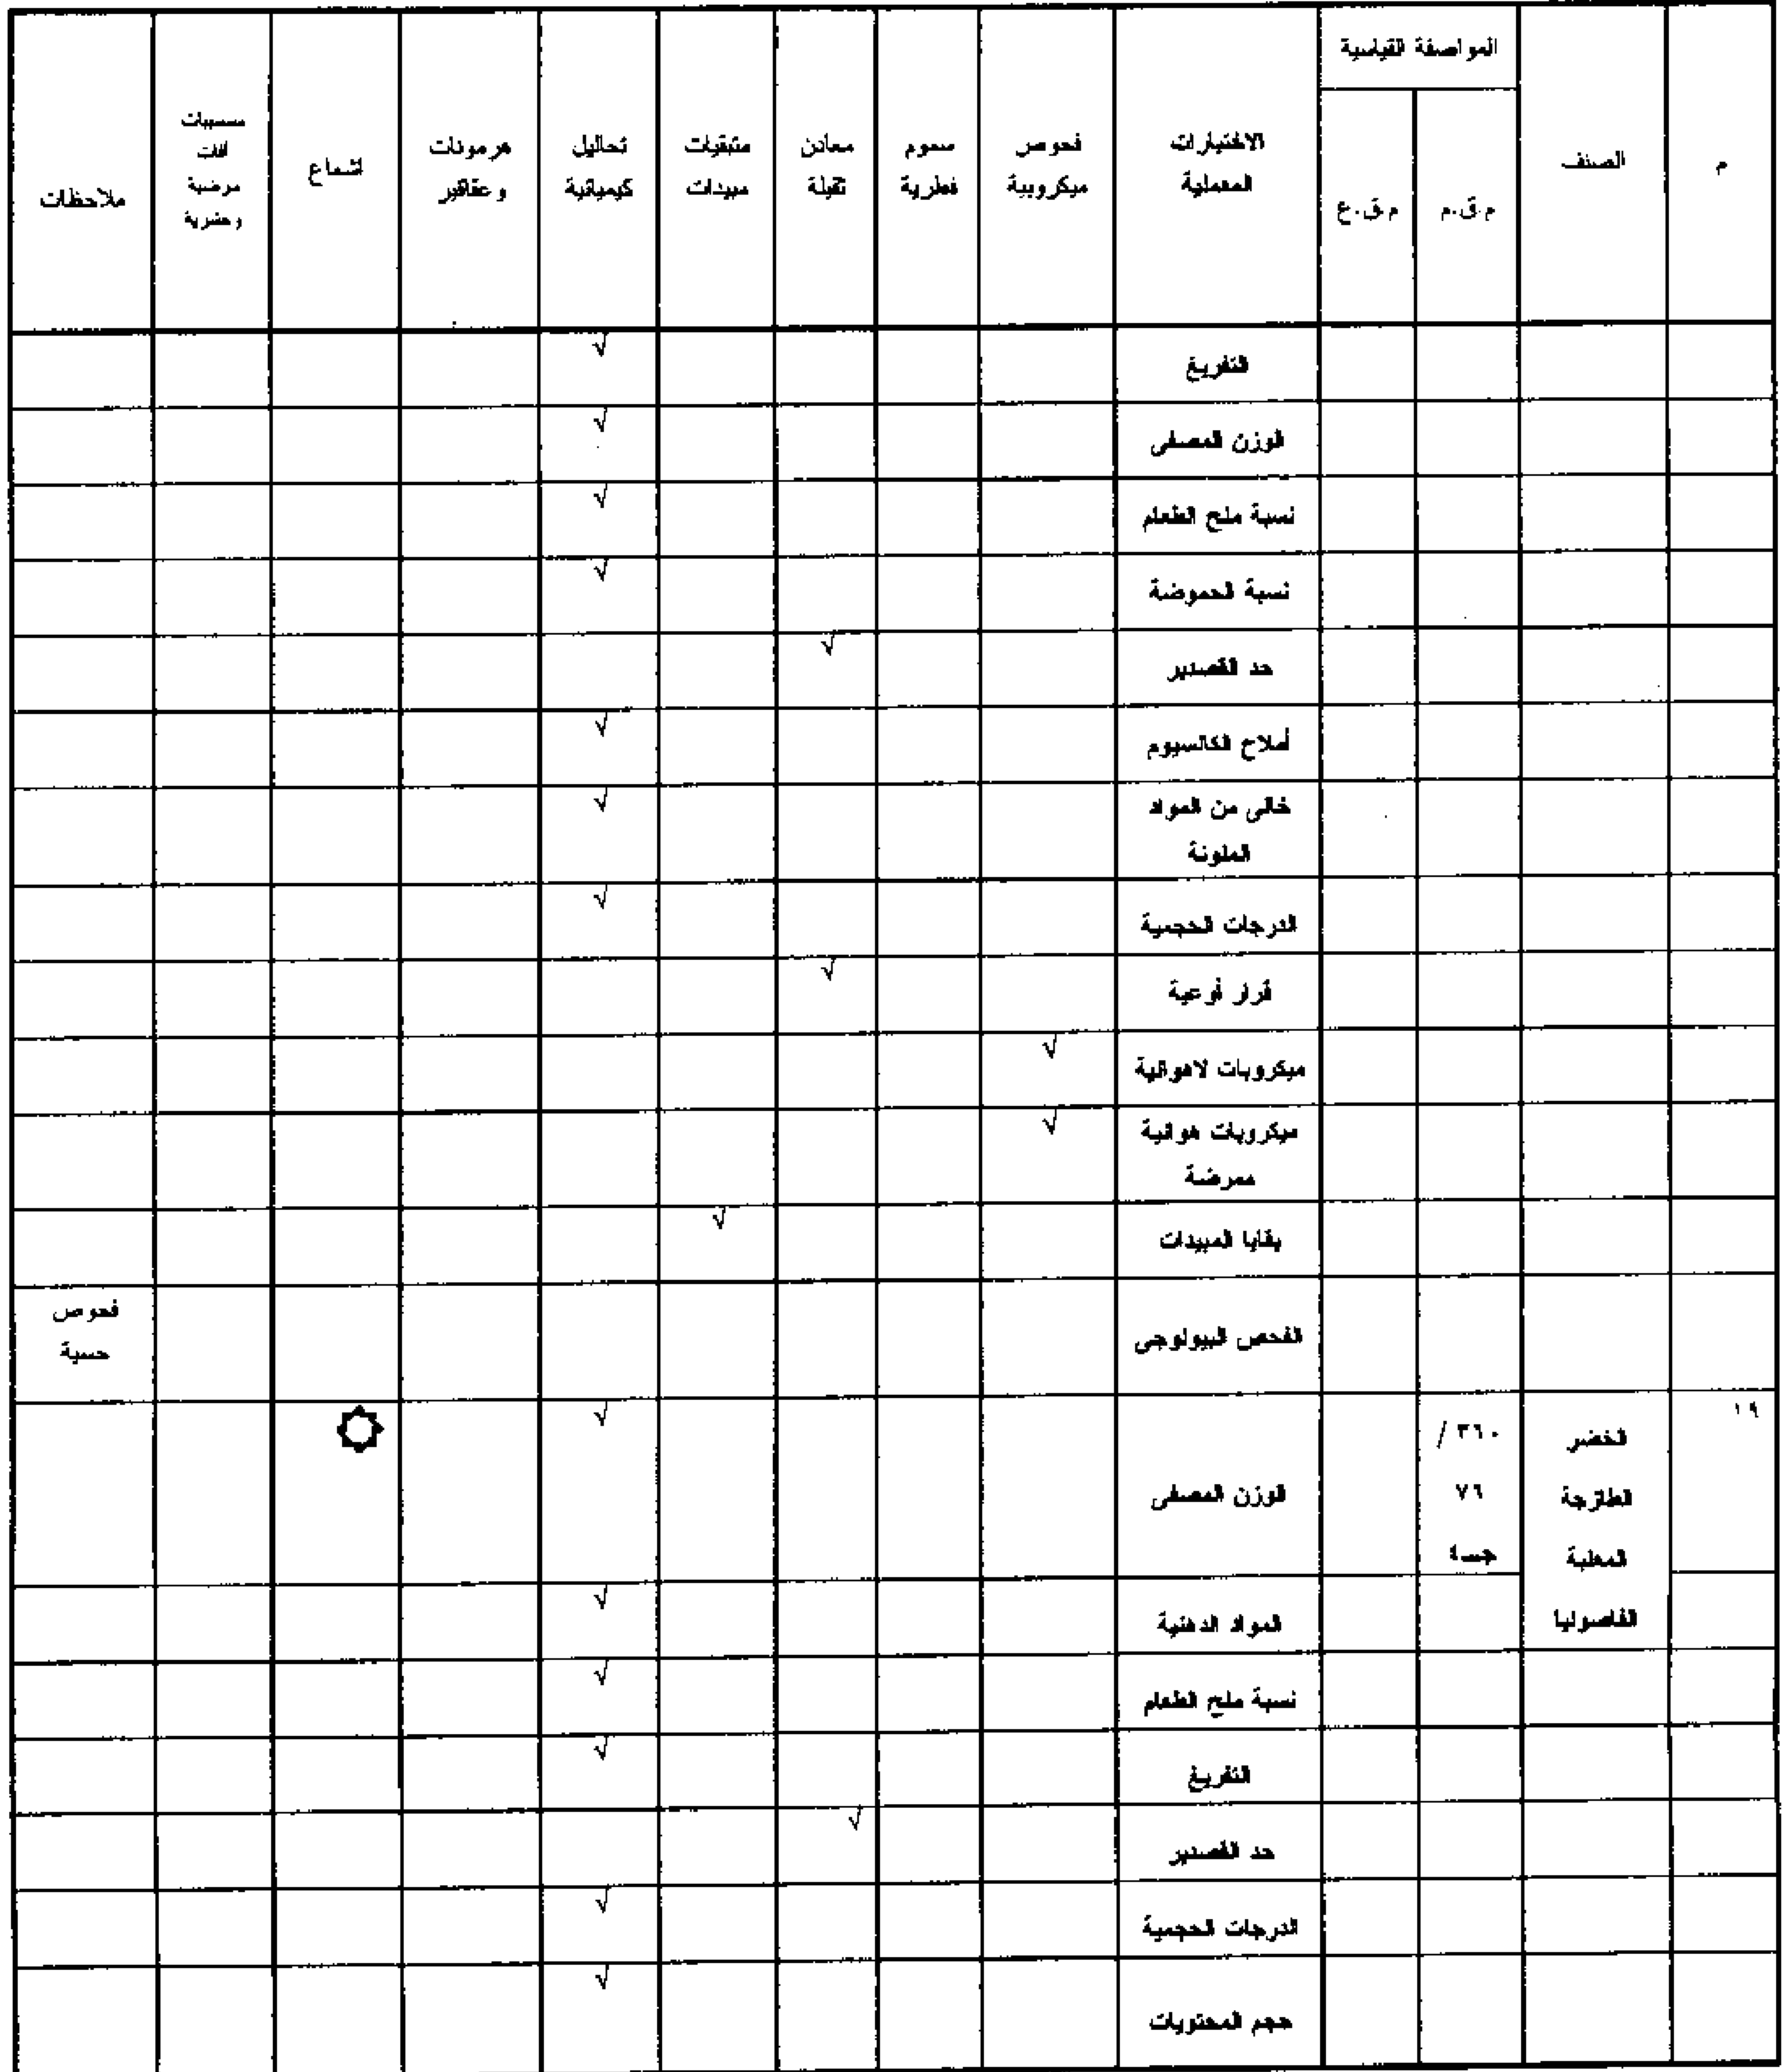 م
الصنف
المواصفة القياسية
م.ق.م
م.ق.ع
الاختبارات
المعملية
فحوص
ميكروبية
سموم
فطرية
معادن
ثقيلة
متبقيات
مبيدات
تحاليل
كيميائية
هرمونات
وعقاقير
اشعاع
مسببات
افات
مرضية
وحشرية
ملاحظات
التفريغ √
الوزن المصفى √
نسبة ملح الطعام √
نسبة الحموضة √
حد القصدير √
أملاح الكالسيوم √
خالى من المواد √
الملونة
الدرجات الحجمية √
فرز أوعية √
ميكروبات لاهوائية √
ميكروبات هوائية √
ممرضة
بقايا المبيدات √
الفحص البيولوجى
فحوص
حسية
١٩
الخضر
الطازجة
المعلبة
الفاصوليا
٣٦٠ /
٧٦
جـ٤
الوزن المصفى √
المواد الدهنية √
نسبة ملح الطعام √
التفريغ √
حد القصدير √
الدرجات الحجمية √
حجم المحتويات √